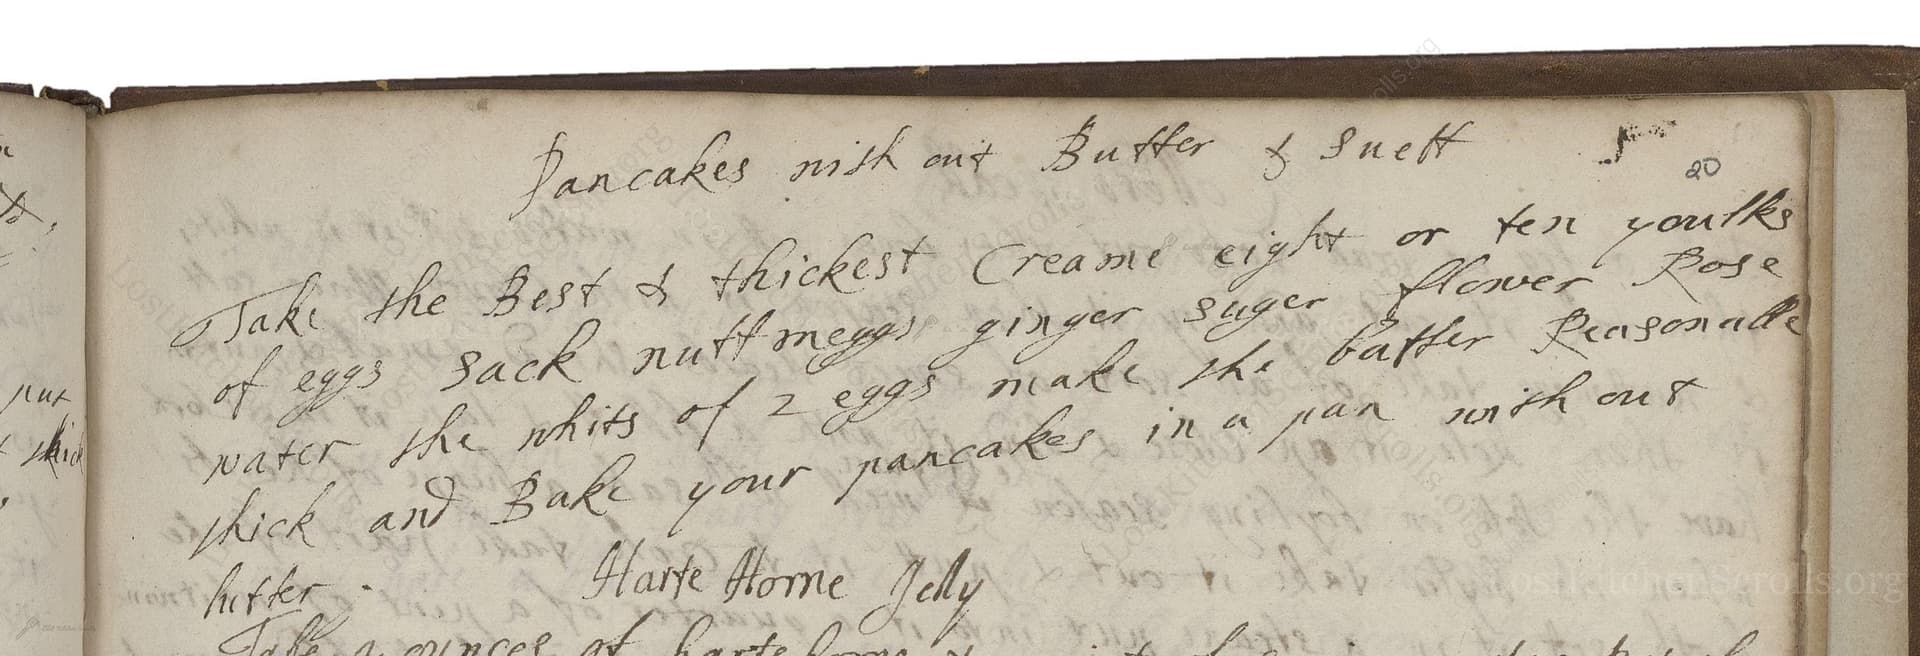 Pancakes with out Butter & Suett
20
Take the Best & thickest Creame eight or ten youlks
of eggs sack nuttmeggs ginger suger flower Rose
water the whits of 2 eggs make the batter Reasonable
thick and Bake your pancakes in a pan with out
butter
Harte Horne Jelly
Take 2 ounces of hartehorne &